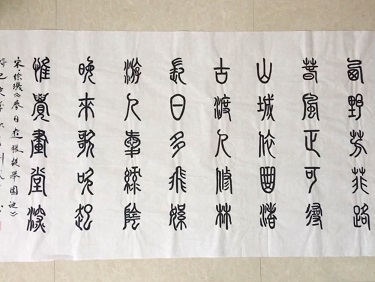 西野芳菲路
春風正可尋
山城依曲渚
古渡入修林
長日多飛絮
游人愛綠陰
晚來歌吹起
惟覺畫堂深
宋徐璣《春日遊張提舉園池》